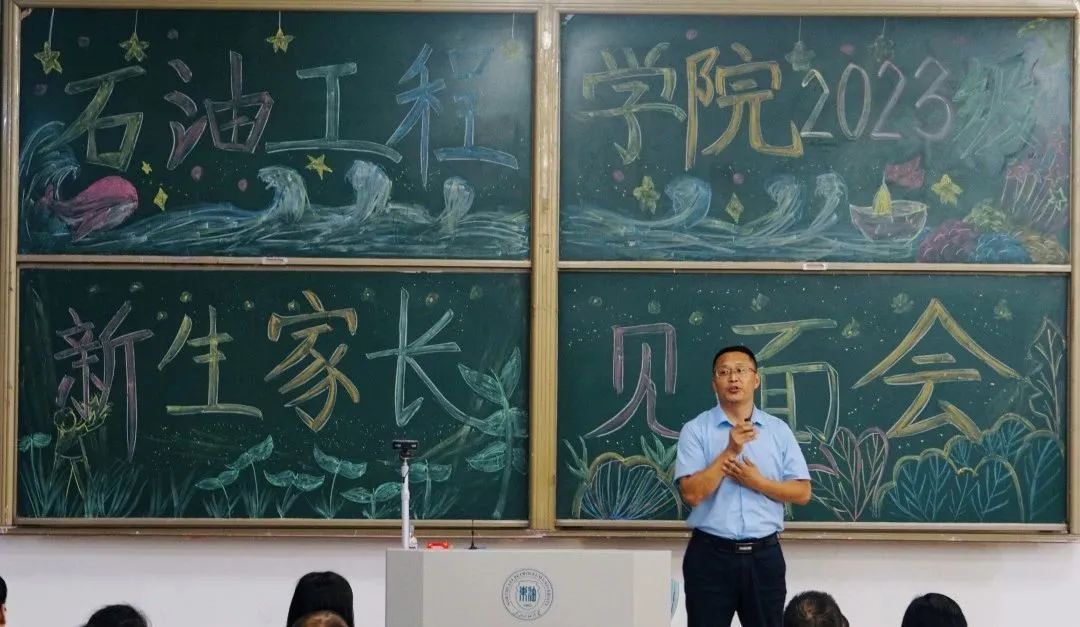 石油工程学院2023级
新生家长见面会